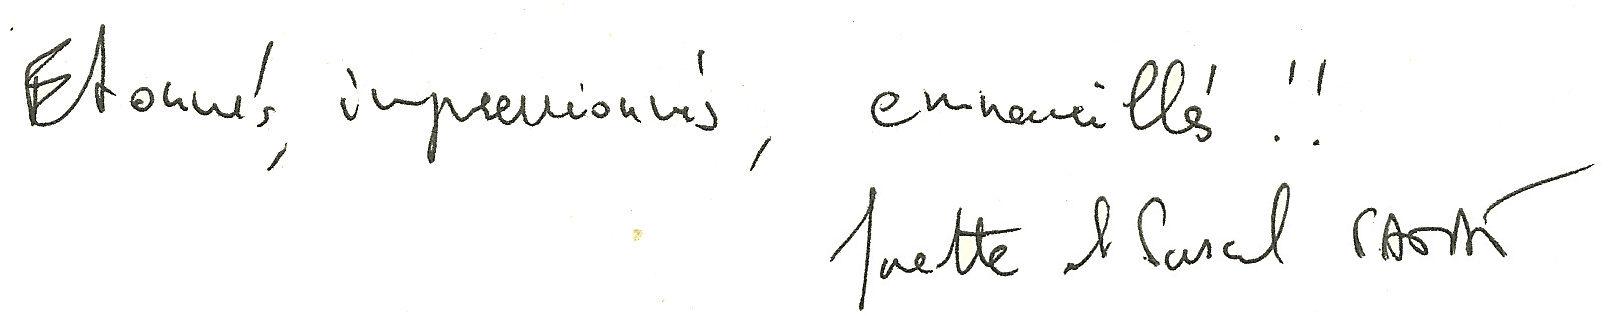 Etonnés, impressionnés, emerveillés !!
et Pascal